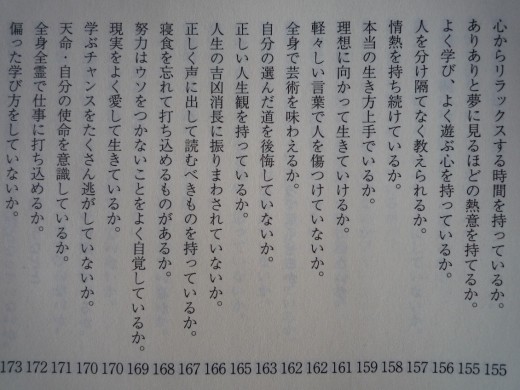 心からリラックスする時間を持っているか。 155
ありありと夢に見るほどの熱意を持てるか。 155
よく学び、よく遊ぶ心を持っているか。 156
人を分け隔てなく教えられるか。 157
情熱を持ち続けているか。 158
本当の生き方上手でいるか。 159
理想に向かって生きていけるか。 161
軽々しい言葉で人を傷つけていないか。 162
全身で芸術を味わえるか。 162
自分の選んだ道を後悔していないか。 163
正しい人生観を持っているか。 165
人生の吉凶消長に振りまわされていないか。 166
正しく声に出して読むべきものを持っているか。 167
寝食を忘れて打ち込めるものがあるか。 168
努力はウソをつかないことをよく自覚しているか。 169
現実をよく愛して生きているか。 170
学ぶチャンスをたくさん逃がしていないか。 170
天命・自分の使命を意識しているか。 171
全身全霊で仕事に打ち込めるか。 172
偏った学び方をしていないか。 173